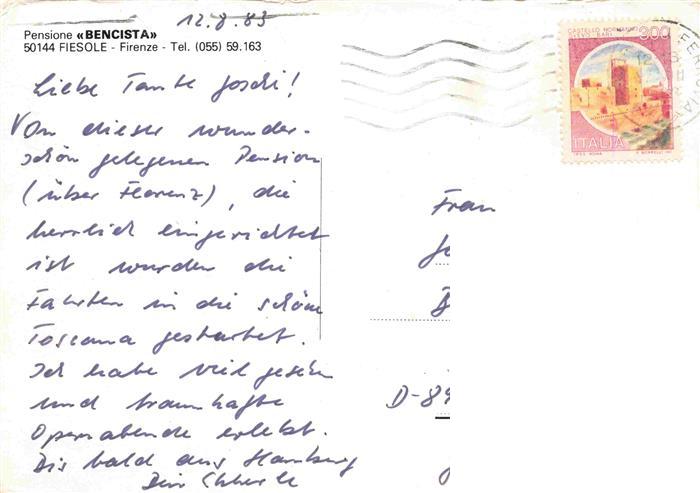 12.8.83
Pension «BENCISTA»
50144 FIESOLE - Firenze - Tel. (055) 59.163
Liebe Tante Joschi!
Von dieser wunder-
schön gelegenen Pension
(über Florenz), die
herrlich eingerichtet
ist wurden die
Fahrten in die schöne
Toscana gestartet.
Ich habe viel gesehen
und traumhafte
Opernabende erlebt.
Bis bald aus Hamburg
Dein
CASTELLO NORMANNO
SVEVO BARI
300
ITALIA
Frau
D-89